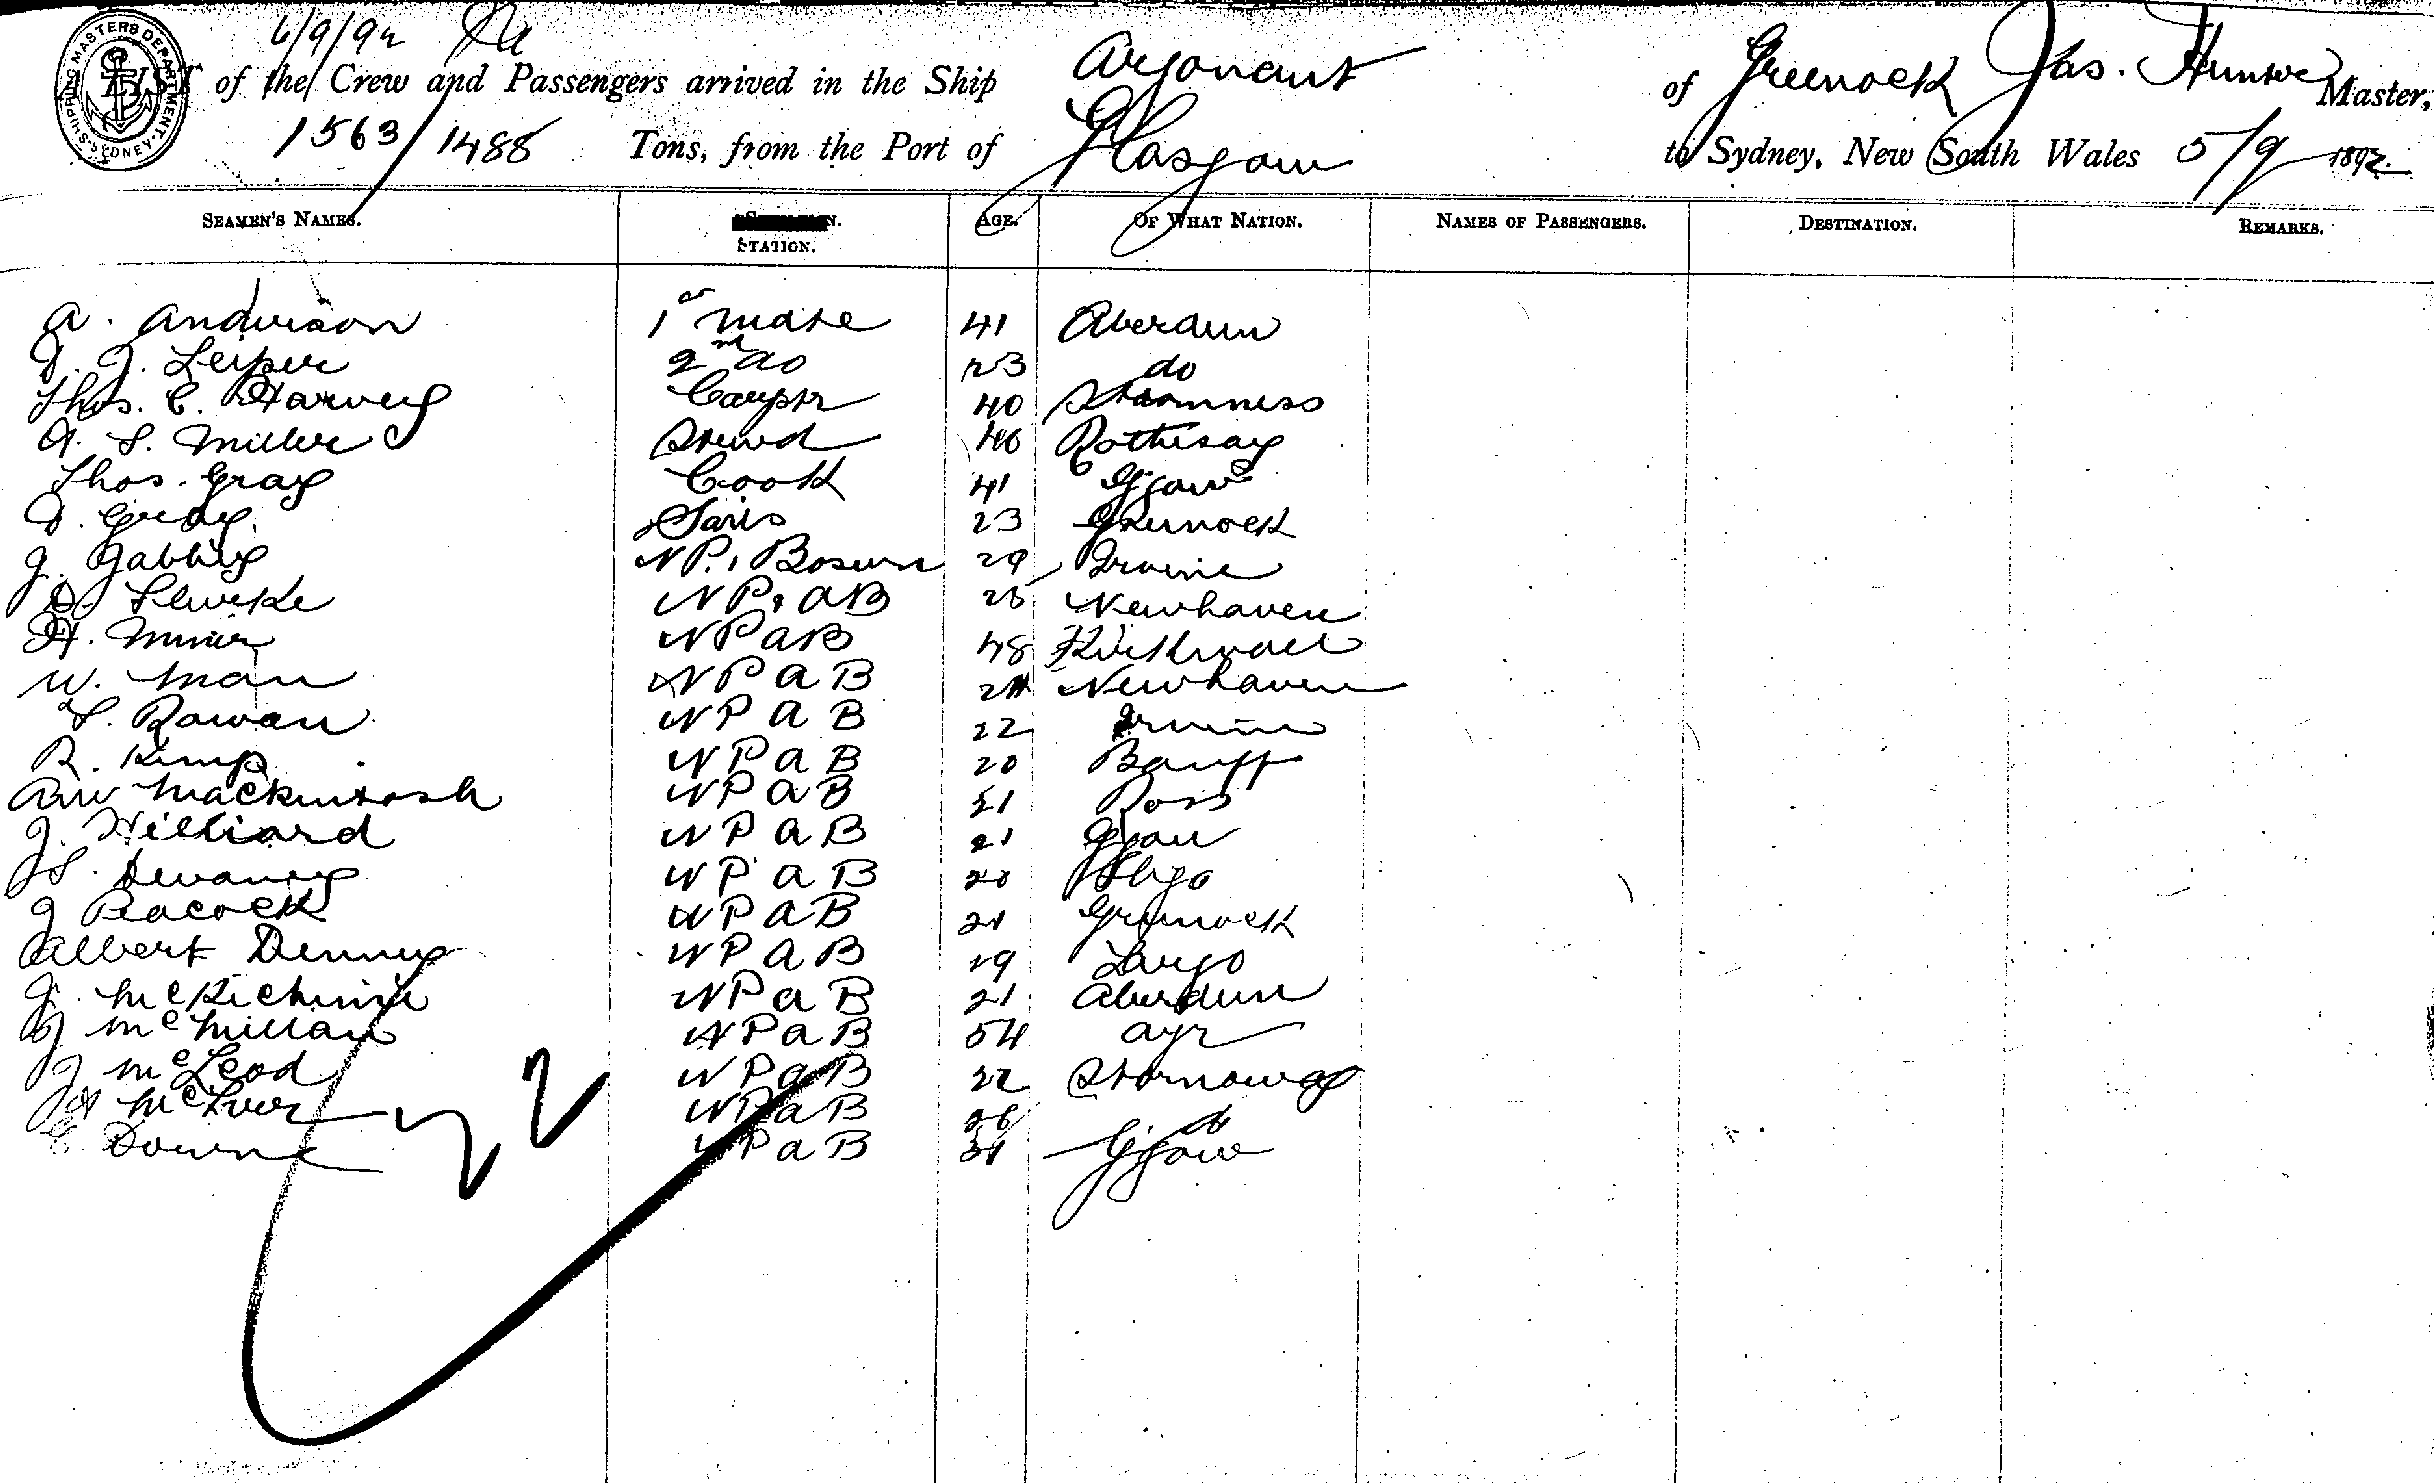 SHIPPING MASTERS DEPARTMENT. SYDNEY
6/9/92
A LIST of the Crew and Passengers arrived in the Ship Argonaut of Greenock Jas. Hunter Master,
1563/1488 Tons, from the Port of Glasgow to Sydney, New South Wales 5/9 1892.
SEAMEN'S NAMES. STATION. AGE. OF WHAT NATION. NAMES OF PASSENGERS. DESTINATION. REMARKS.
A. Anderson 1st mate 41 Aberdeen
J. Leiper 2nd do 23 do
Thos. C. Harvey Carptr 40 Stromness
A. S. Miller Stewd 40 Rothesay
Thos. Gray Cook 41 Ggow
D. Gray Sails 23 Greenock
J. Gabbig NP. Bosun 29 Irvine
NP. AB 25 Newhaven
H. NP AB 48 Kirkwall
W. Man NP AB Newhaven
T. Rowan NP AB 22 Irvine
R. Kemp NP AB 20 Banff
Anw Mackintosh NP AB 21 Ross
J. Hilliard NP AB 21 Ggow
Devaney NP AB 20 Sligo
J Peacock NP AB 21 Greenock
Albert Denny NP AB 19 Largo
J. McKechnie NP AB 21 Aberdeen
J McMillan NP AB 54 Ayr
J McLeod NP AB 22 Stornoway
McIver NP AB 26 do
Downe NP AB Ggow
22